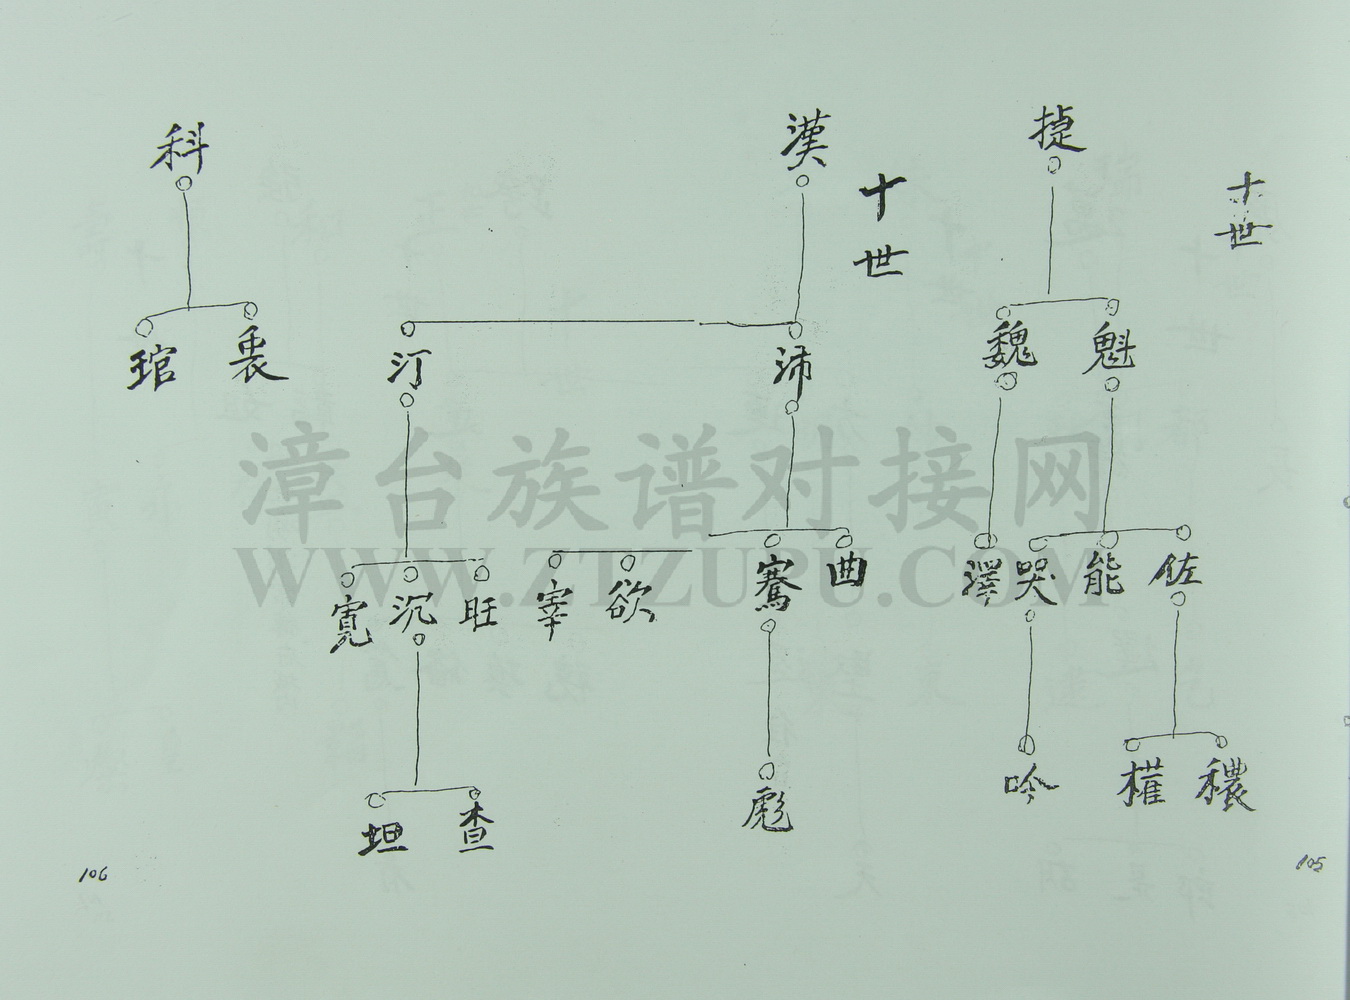 十世
捷
魁 魏
佐 能 哭 澤
穠 權 吟
105
十世
漢
沛 汀
曲 騫 欲 宰 旺 沉 寬
彪 查 坦
科
裏 琯
106
漳台族谱对接网
WWW.ZTZUPU.COM